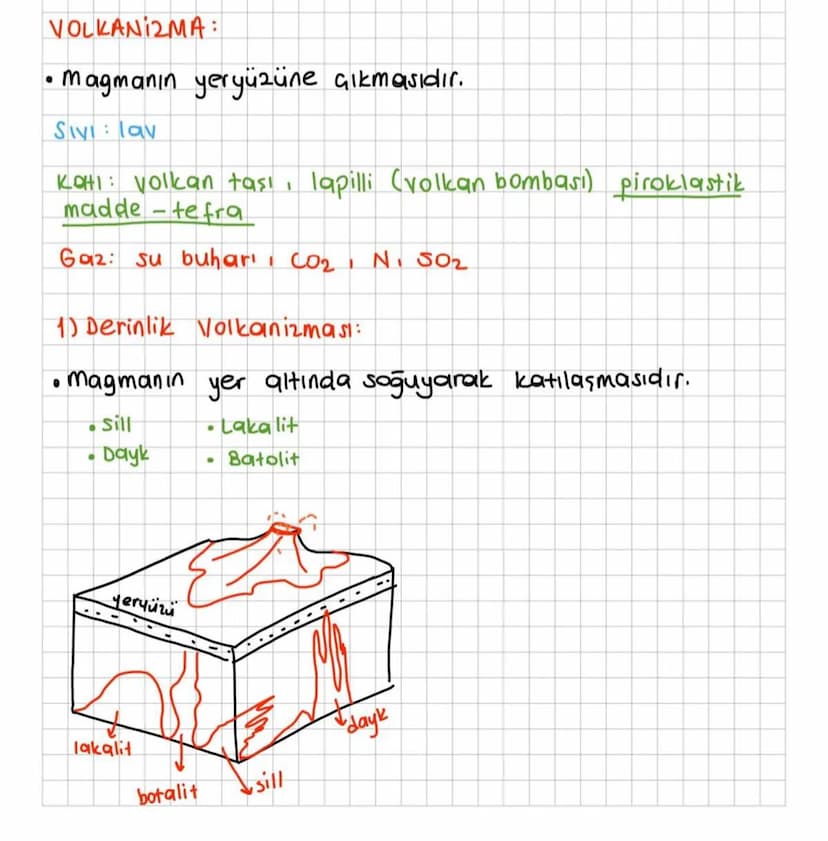 VOLKANİZMA:
• Magmanın yeryüzüne çıkmasıdır.
Sıvı: lav
Katı: volkan taşı, lapilli (volkan bombası) piroklastik
madde - tefra
Gaz: su buharı, CO2, N, SO2
1) Derinlik Volkanizması:
• Magmanın yer altında soğuyarak katılaşmasıdır.
• Sill • Lakalit
• Dayk • Batolit
yeryüzü
lakalit
botalit
sill
dayk